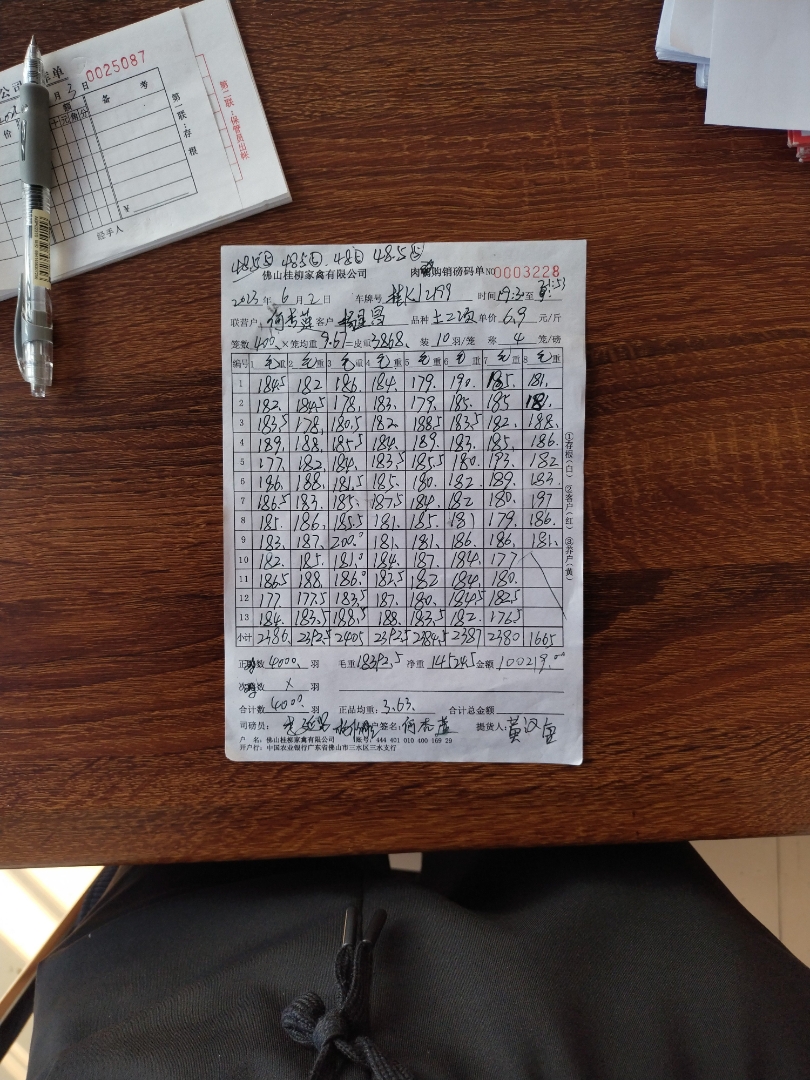 0025087
月 3 日
备 考
第一联：存根
第二联：保管员出帐
经手人
¥
48.5 48.5 48 48.5
佛山桂柳家禽有限公司 肉 购销磅码单 NO 0003228
2023 年 6 月 2 日 车牌号 桂K12199 时间 19:30 至 21:53
联营户: 何杏燕 客户: 杨 品种 土二 单价 6.9 元/斤
笼数 400. ×笼均重 9.67 =皮重 3868. 装 10 羽/笼 称 4 笼/磅
编号 1 毛重 2 毛重 3 毛重 4 毛重 5 毛重 6 毛重 7 毛重 8 毛重
1 184.5 182 186. 184. 179. 190. 185. 181.
2 182. 184.5 178. 183. 179. 185. 185 181.
3 183.5 178. 180.5 182 188.5 183.5 182. 188.
4 189. 188. 185.5 184. 189. 183. 185. 186.
5 177. 182. 184. 183.5 185.5 180. 193. 182
6 186. 188. 181.5 185. 180. 182. 189. 183.
7 186.5 183. 185. 187.5 184. 182 180. 197
8 185. 186. 185.5 181. 185. 181 179. 186.
9 183. 187. 200.0 181. 181. 186. 186. 181.
10 182. 185. 181.0 184. 187. 184. 177
11 186.5 188. 186.0 182.5 182 184. 180.
12 177. 177.5 183.5 187. 180. 184.5 182.5
13 184. 183.5 188.5 188. 183.5 182. 176.5
小计 2386. 2392.5 2405 2392.5 2384.5 2387 2380 1665
正 数 4000. 羽 毛重 18392.5 净重 14524.5 金额 100219.00
次 数 × 羽
合计数 4000. 羽 正品均重: 3.63. 合计总金额
司磅员: 户签名: 何杏燕 提货人: 黄汉
户 名: 佛山桂柳家禽有限公司 账号: 444 401 010 400 169 29
开户行: 中国农业银行广东省佛山市三水区三水支行
①存根(白) ②客户(红) ③养户(黄)